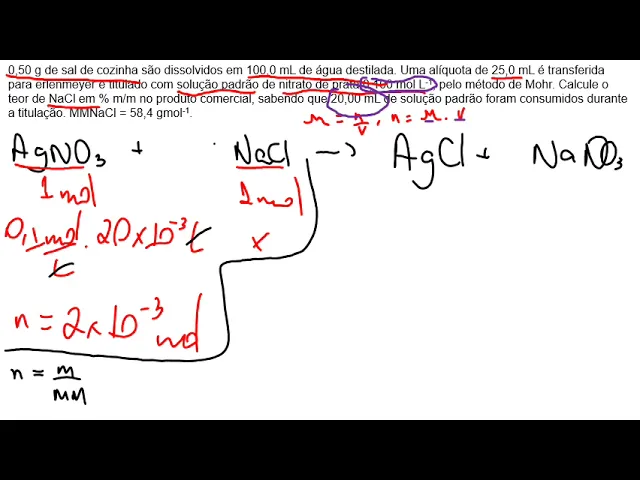 0,50 g de sal de cozinha são dissolvidos em 100,0 mL de água destilada. Uma alíquota de 25,0 mL é transferida
para erlenmeyer e titulado com solução padrão de nitrato de prata 0,100 mol L⁻¹ pelo método de Mohr. Calcule o
teor de NaCl em % m/m no produto comercial, sabendo que 20,00 mL de solução padrão foram consumidos durante
a titulação. MMNaCl = 58,4 gmol⁻¹.
M = n/V , n = M . V
AgNO₃ + NaCl → AgCl + NaNO₃
1 mol 1 mol
0,1 mol/L . 20 x 10⁻³ L x
n = 2 x 10⁻³ mol
n = m/MM